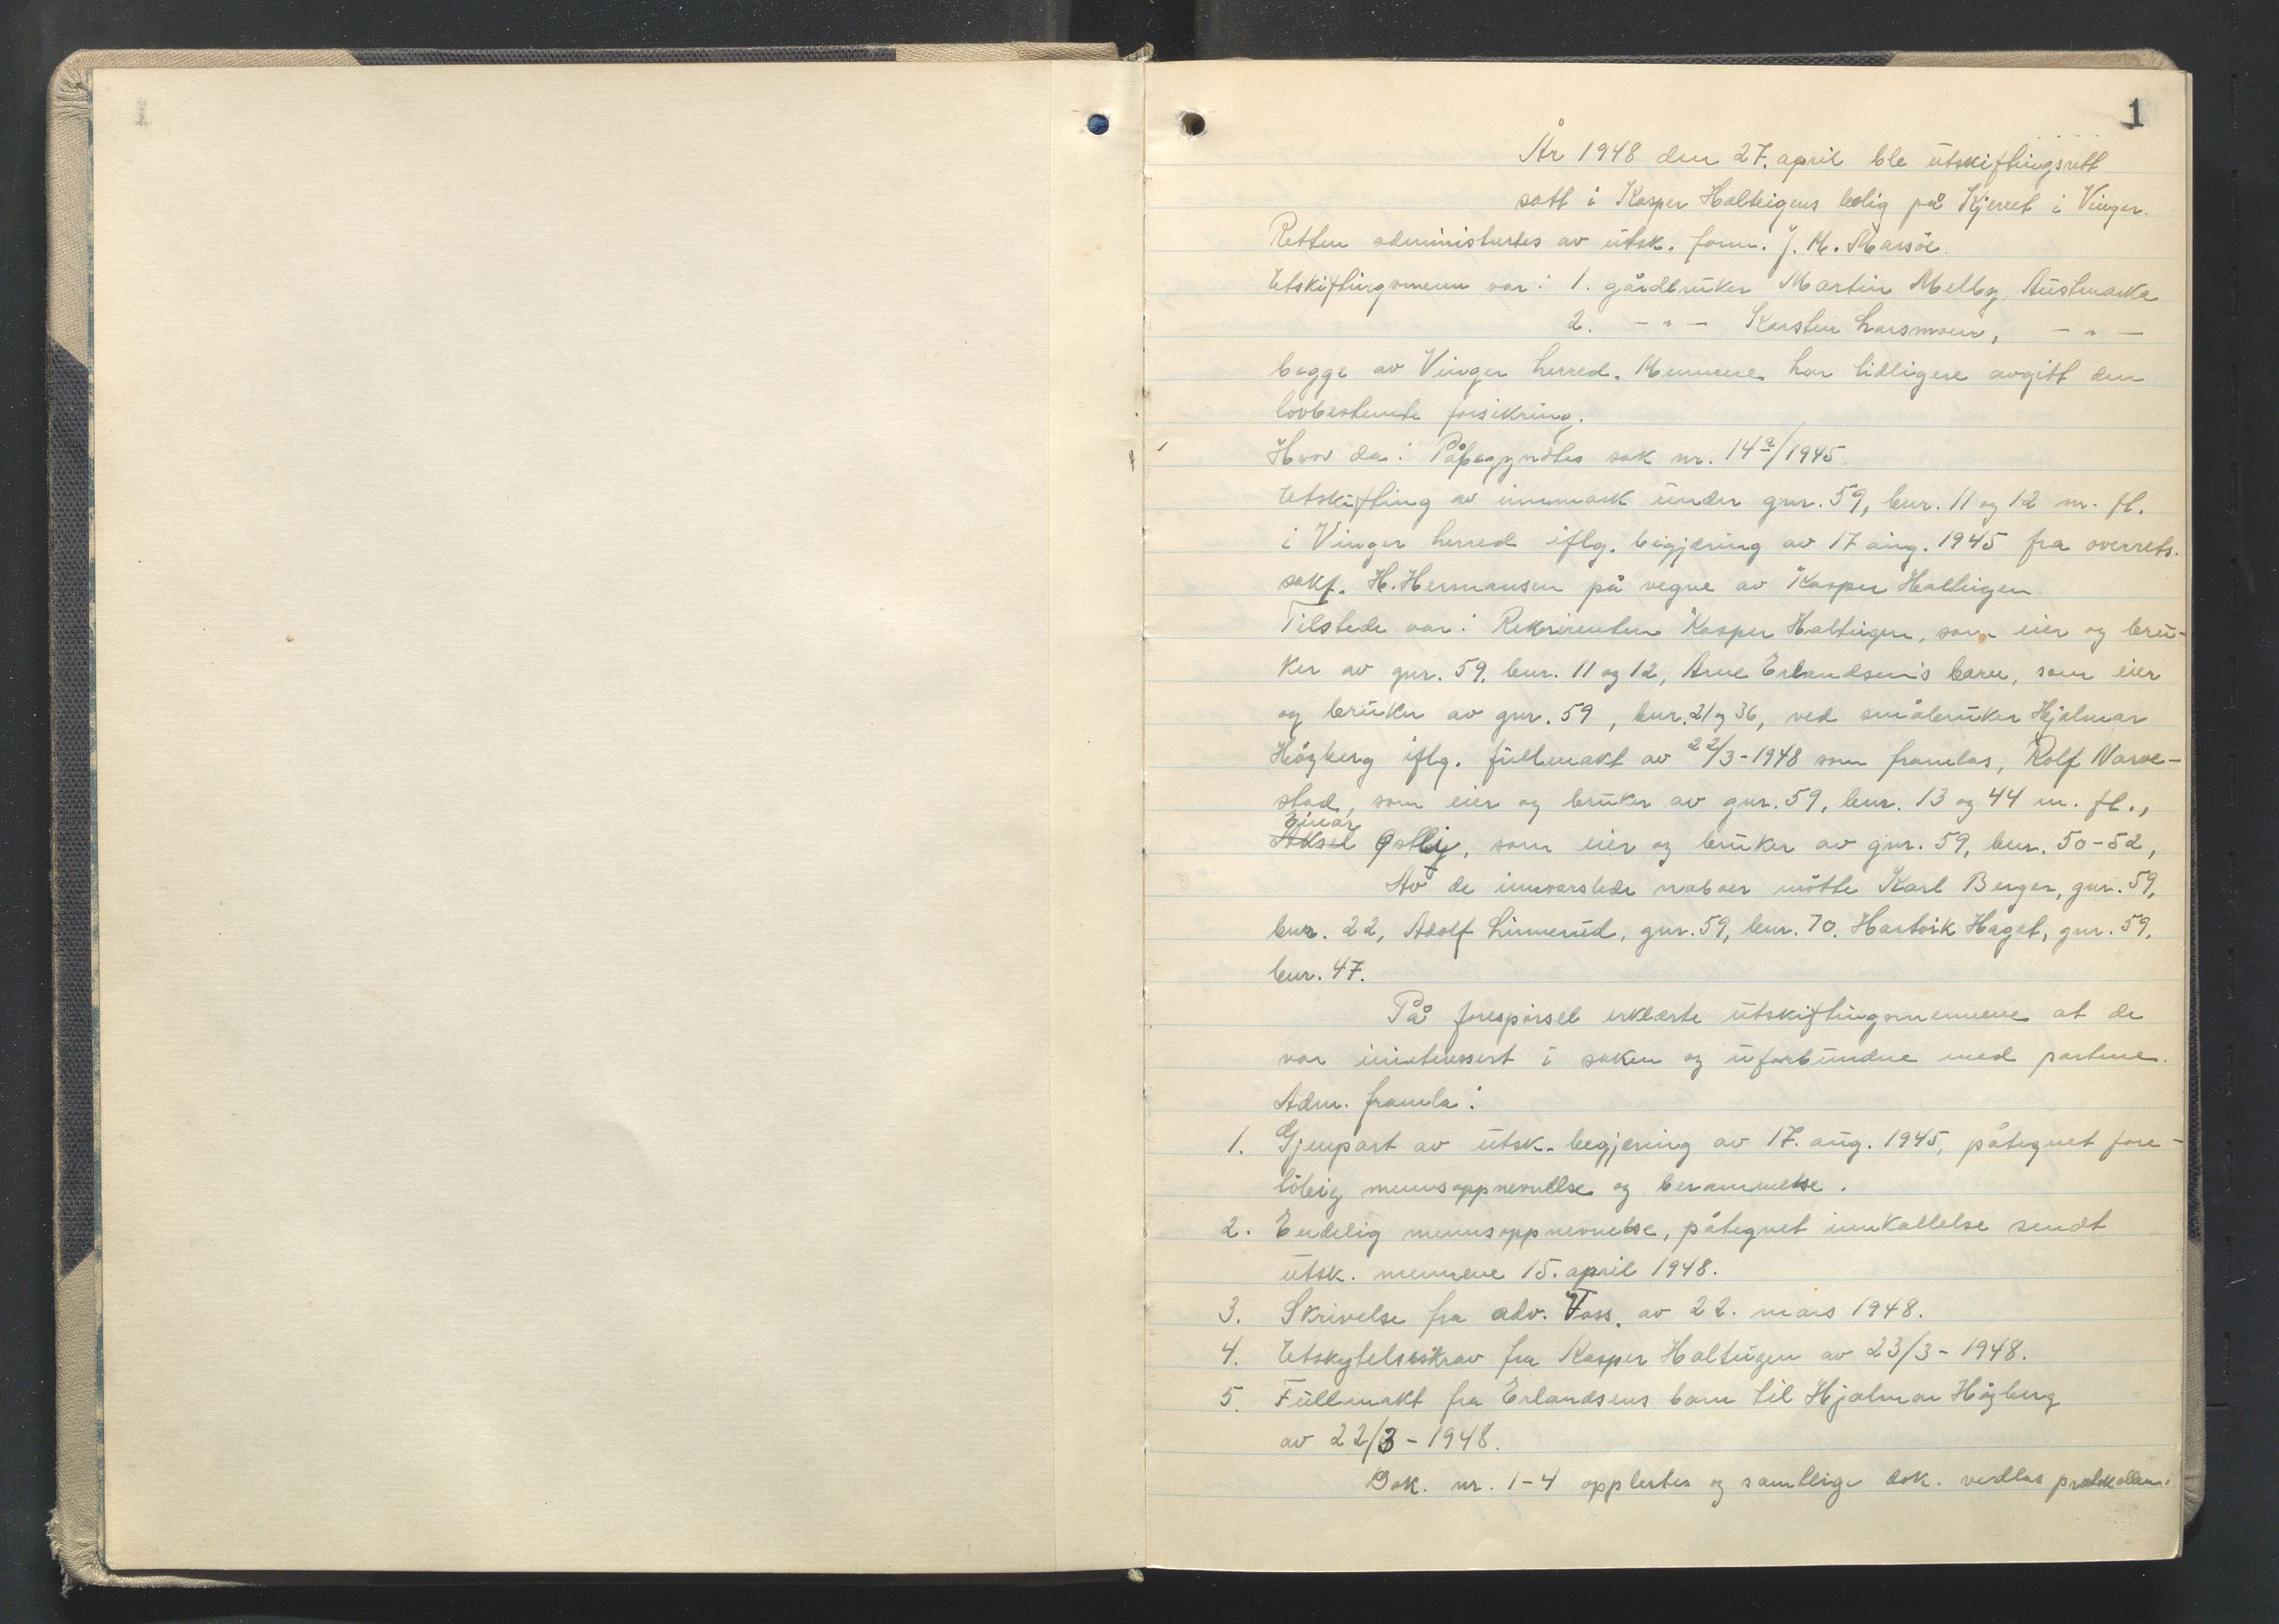 1
År 1948 den 27. april ble utskiftingsrett
satt i Kasper Halteigens bolig på Kjerret i Vinger.
Retten administrertes av utsk. form. J. M. Marsöe.
Utskiftingsmenn var: 1. gårdbruker Martin Melby, Austmarka
2. - " - Karsten Larsmoen, - " -
begge av Vinger herred. Mennene har tidligere avgitt den
lovbestemte forsikring.
Hvor da: Påbegyndtes sak nr. 14a/1945.
Utskifting av innmark under gnr. 59, bnr. 11 og 12 m. fl.
i Vinger herred iflg. begjæring av 17 aug. 1945 fra overrets-
sakf. H. Hermansen på vegne av Kasper Halteigen.
Tilstede var: Rekvirenten Kasper Halteigen, som eier og bru-
ker av gnr. 59, bnr. 11 og 12, Arne Erlandsen's barn, som eier
og bruker av gnr. 59, bnr. 21 og 36, ved småbruker Hjalmar
Högberg iflg. fullmakt av 22/3-1948 som framlas, Rolf Narve-
stad, som eier og bruker av gnr. 59, bnr. 13 og 44 m. fl.,
Einar
Aksel Östby, som eier og bruker av gnr. 59, bnr. 50-52,
Av de innvarslede naboer mötte Karl Berger, gnr. 59,
bnr. 22, Adolf Linnerud, gnr. 59, bnr. 70. Hartvik Haget, gnr. 59,
bnr. 47.
På forespörsel erklærte utskiftingsmennene at de
var uinteressert i saken og uforbundne med partene.
Adm. framla:
1. Gjenpart av utsk. begjæring av 17. aug. 1945, påtegnet fore-
löbig mennsoppnevnelse og berammelse.
2. Endelig mennsoppnevnelse, påtegnet innkallelse sendt
utsk. mennene 15. april 1948.
3. Skrivelse fra adv. Foss. av 22. mars 1948.
4. Utskytelseskrav fra Kasper Halteigen av 23/3-1948.
5. Fullmakt fra Erlandsens barn til Hjalmar Högberg
av 22/3-1948.
Dok. nr. 1-4 opplestes og samtlige dok. vedlas protokollen.